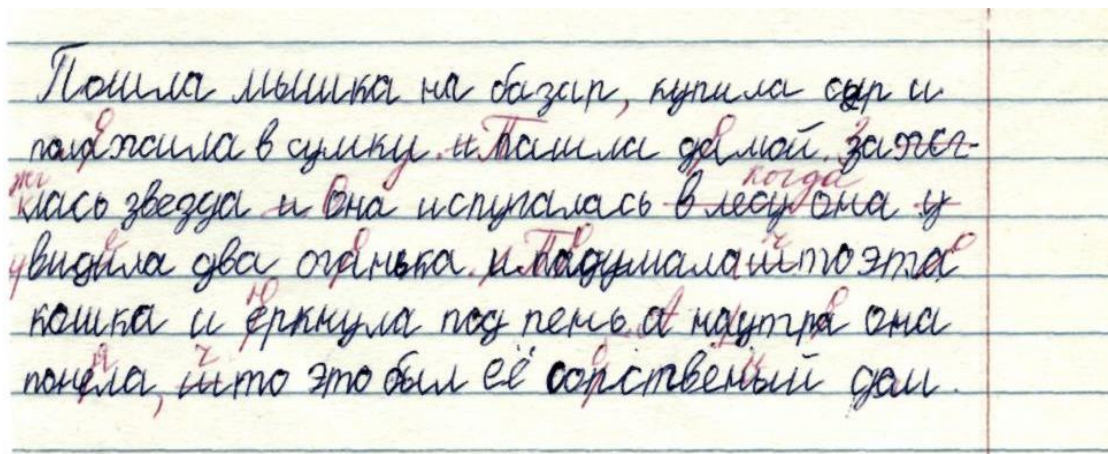 Пошла мышка на базар, купила сыр и
положила в сумку. и Пошла домой. Зажег-
жглась звезда и Она испугалась в лесу когда она у
увидела два огонька. и Подумала что это
кошка и юркнула под пень. А наутро она
поняла, что это был её собственный дом.